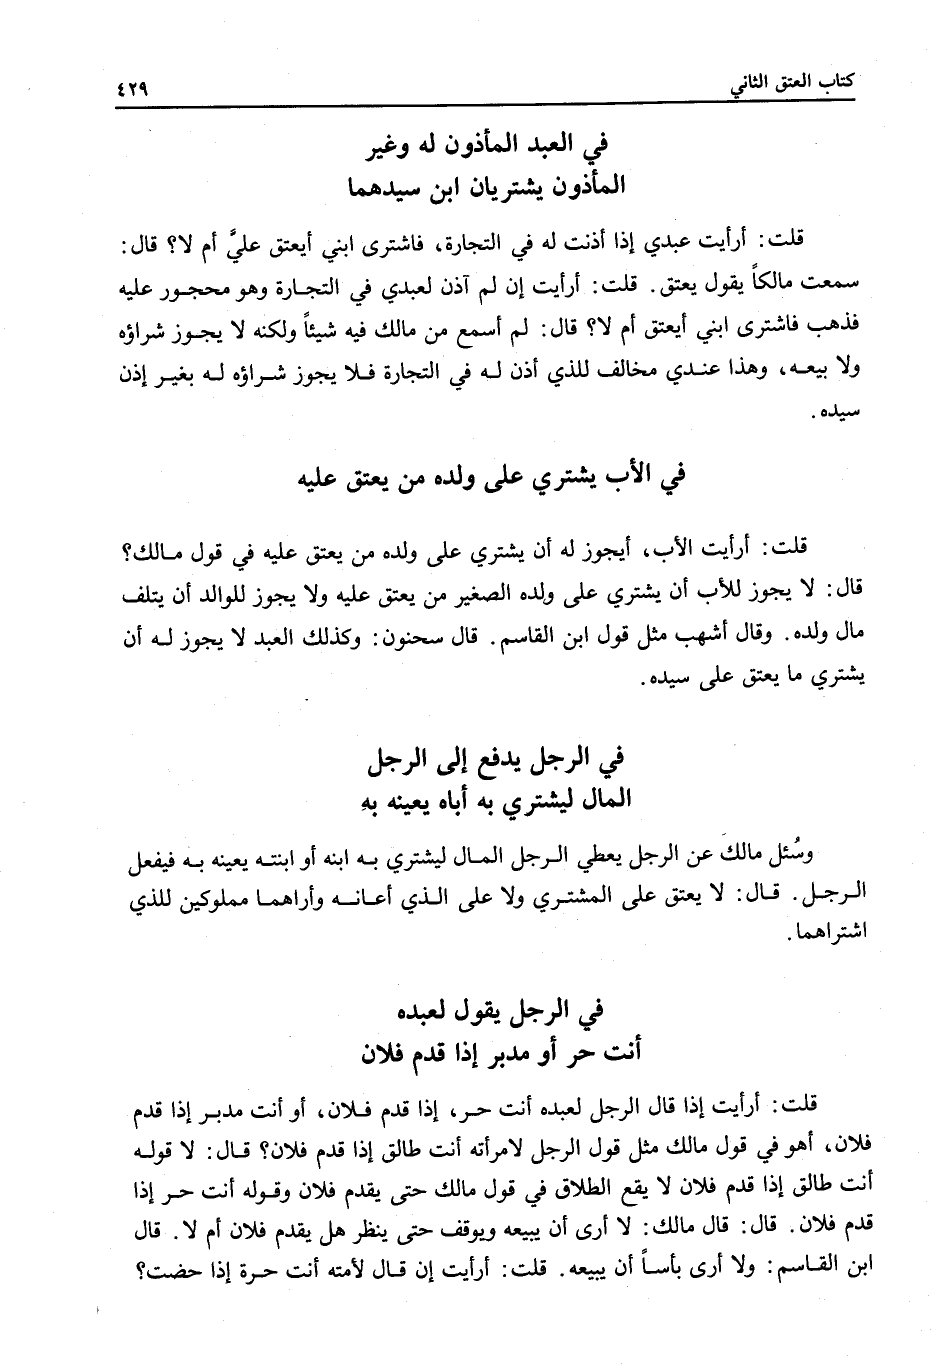 كتاب العتق الثاني ٤٢٩
في العبد المأذون له وغير
المأذون يشتريان ابن سيدهما
قلت: أرأيت عبدي إذا أذنت له في التجارة، فاشترى ابني أيعتق عليَّ أم لا؟ قال:
سمعت مالكاً يقول يعتق. قلت: أرأيت إن لم آذن لعبدي في التجارة وهو محجور عليه
فذهب فاشترى ابني أيعتق أم لا؟ قال: لم أسمع من مالك فيه شيئاً ولكنه لا يجوز شراؤه
ولا بيعه، وهذا عندي مخالف للذي أذن له في التجارة فلا يجوز شراؤه له بغير إذن
سيده.
في الأب يشتري على ولده من يعتق عليه
قلت: أرأيت الأب، أيجوز له أن يشتري على ولده من يعتق عليه في قول مالك؟
قال: لا يجوز للأب أن يشتري على ولده الصغير من يعتق عليه ولا يجوز للوالد أن يتلف
مال ولده. وقال أشهب مثل قول ابن القاسم. قال سحنون: وكذلك العبد لا يجوز له أن
يشتري ما يعتق على سيده.
في الرجل يدفع إلى الرجل
المال ليشتري به أباه يعينه بهِ
وسُئل مالك عن الرجل يعطي الرجل المال ليشتري به ابنه أو ابنته يعينه به فيفعل
الرجل. قال: لا يعتق على المشتري ولا على الذي أعانه وأراهما مملوكين للذي
اشتراهما.
في الرجل يقول لعبده
أنت حر أو مدبر إذا قدم فلان
قلت: أرأيت إذا قال الرجل لعبده أنت حر، إذا قدم فلان، أو أنت مدبر إذا قدم
فلان، أهو في قول مالك مثل قول الرجل لامرأته أنت طالق إذا قدم فلان؟ قال: لا قوله
أنت طالق إذا قدم فلان لا يقع الطلاق في قول مالك حتى يقدم فلان وقوله أنت حر إذا
قدم فلان. قال: قال مالك: لا أرى أن يبيعه ويوقف حتى ينظر هل يقدم فلان أم لا. قال
ابن القاسم: ولا أرى بأساً أن يبيعه. قلت: أرأيت إن قال لأمته أنت حرة إذا حضت؟